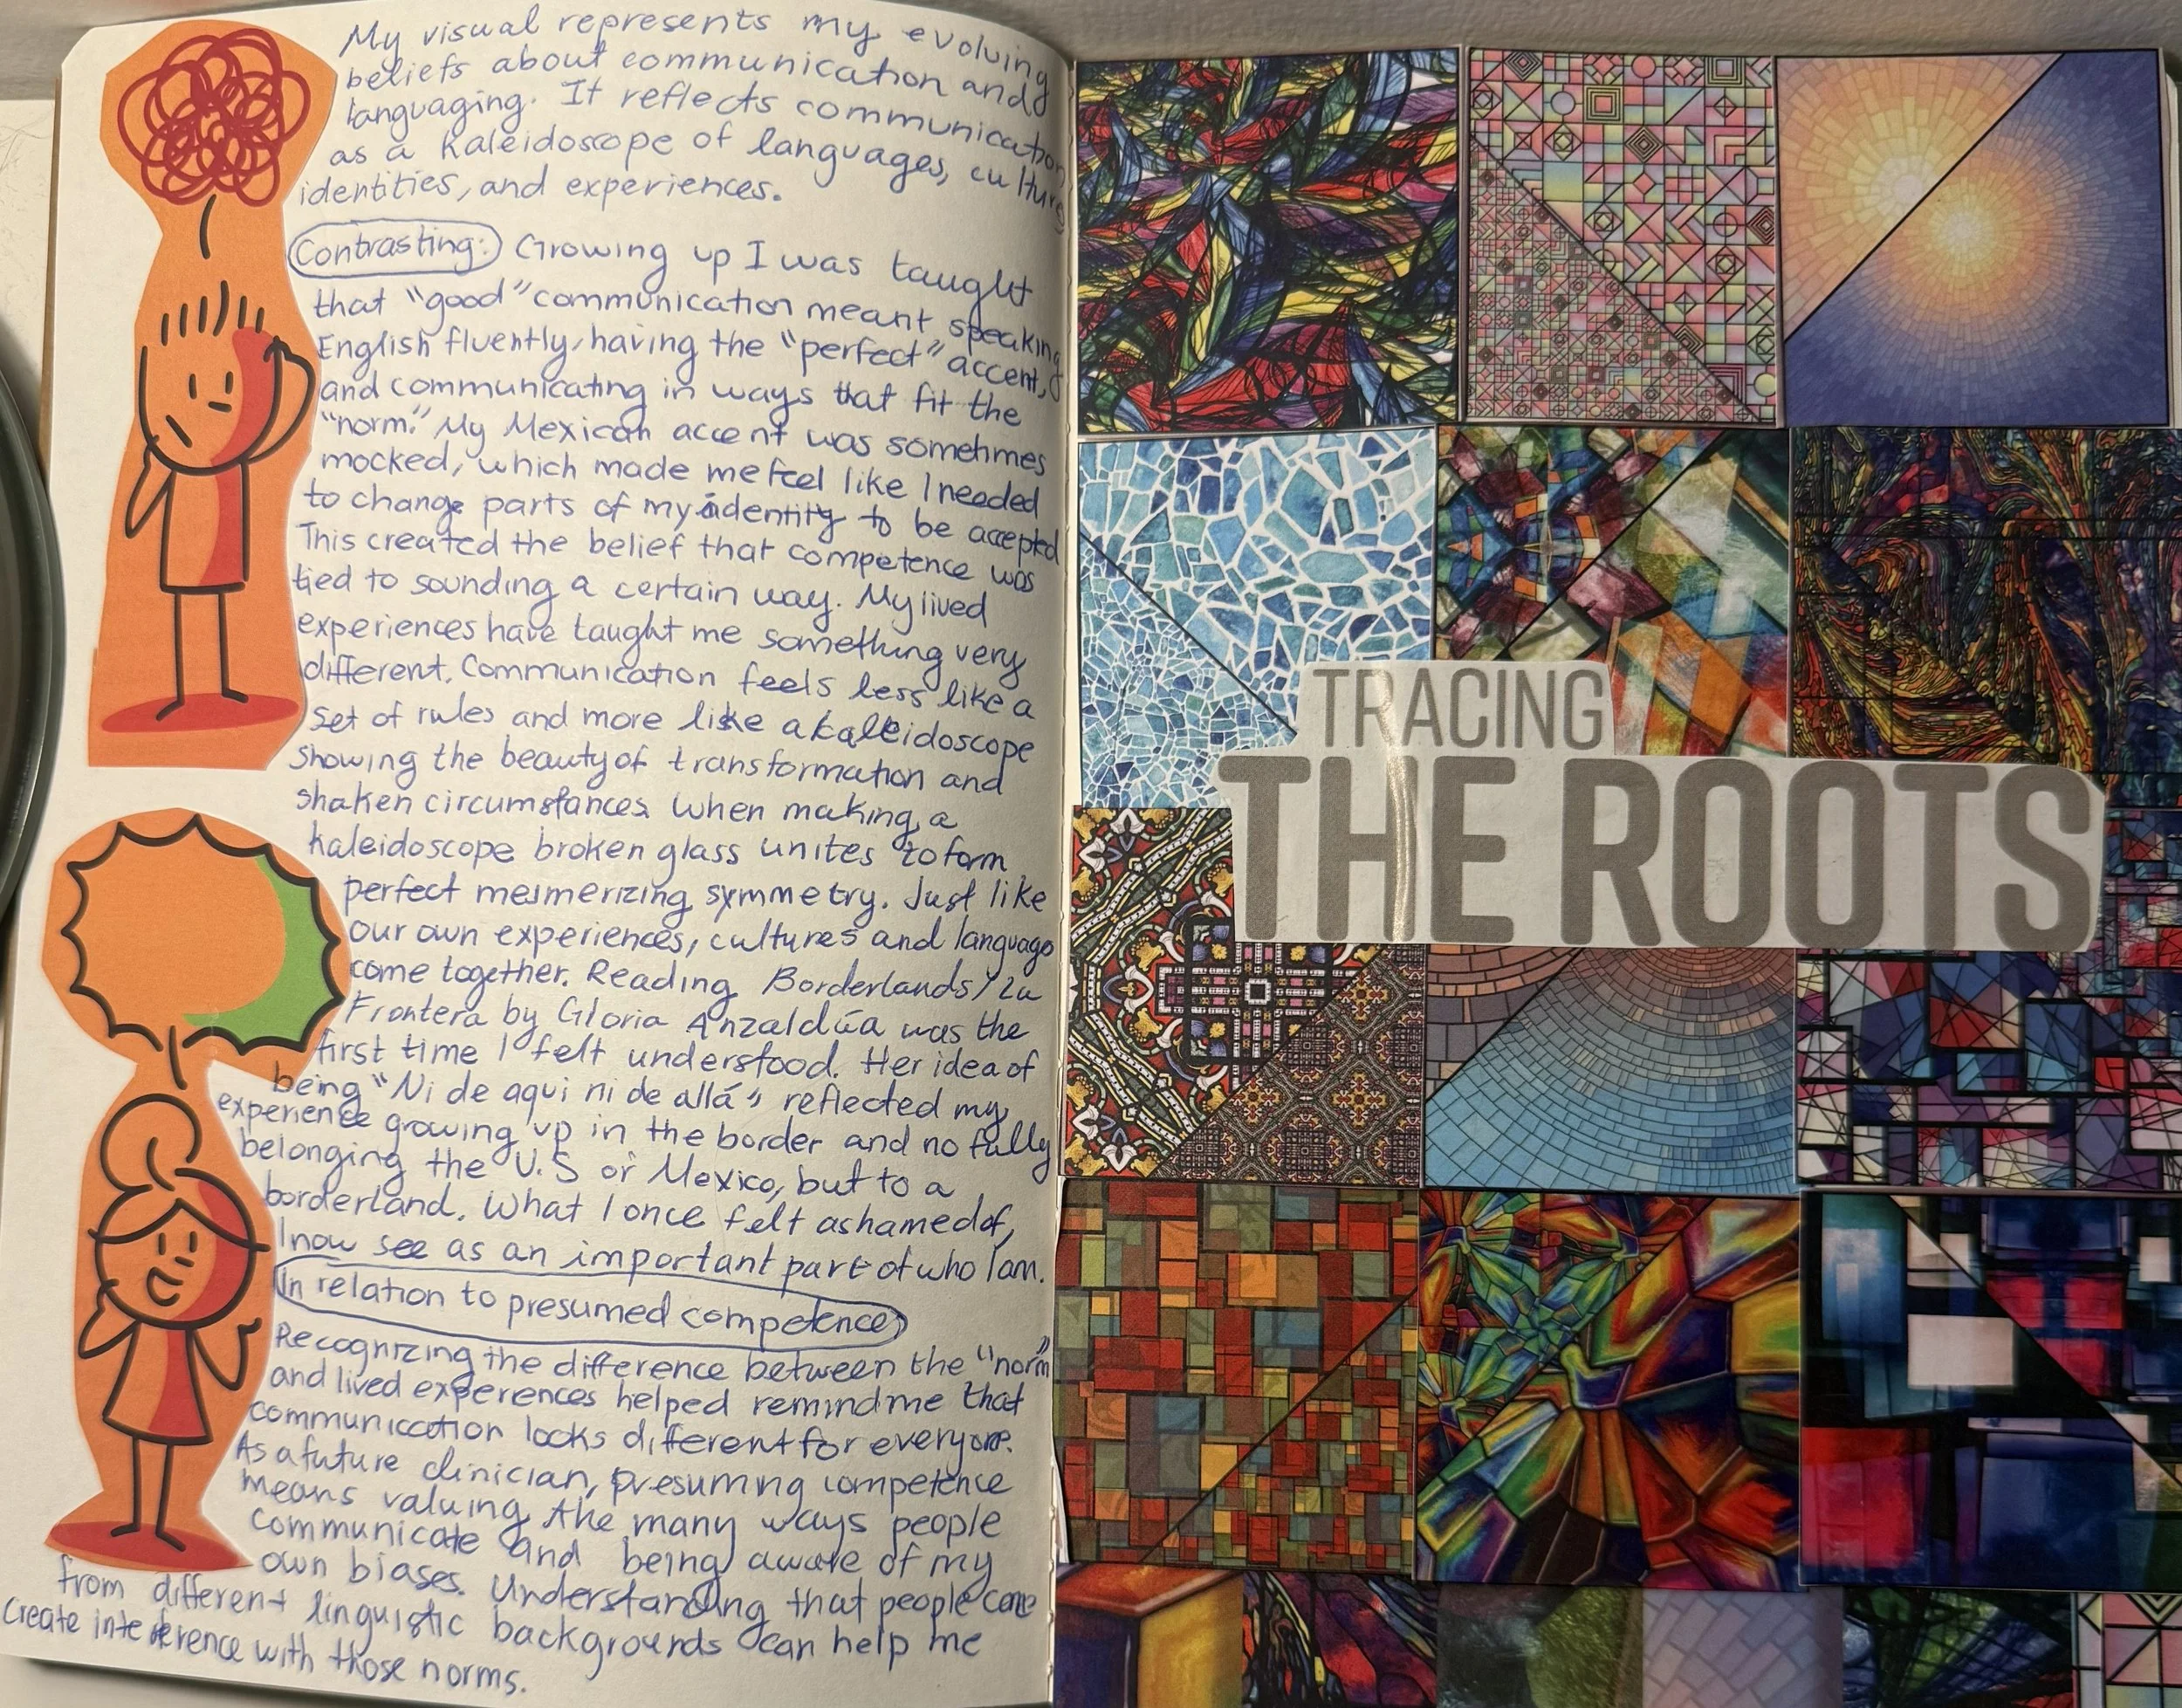 My visual represents my evolving
beliefs about communication and
languaging. It reflects communication
as a kaleidoscope of languages, cultures
identities, and experiences.
Contrasting: Growing up I was taught
that "good" communication meant speaking
English fluently, having the "perfect" accent,
and communicating in ways that fit the
"norm." My Mexican accent was sometimes
mocked, which made me feel like I needed
to change parts of my identity to be accepted
This created the belief that competence was
tied to sounding a certain way. My lived
experiences have taught me something very
different. Communication feels less like a
set of rules and more like a kaleidoscope
showing the beauty of transformation and
shaken circumstances. When making a
kaleidoscope broken glass unites to form
perfect mesmerizing symmetry. Just like
our own experiences, cultures and language
come together. Reading Borderlands/La
Frontera by Gloria Anzaldúa was the
first time I felt understood. Her idea of
being "Ni de aqui ni de allá" reflected my
experience growing up in the border and no fully
belonging the U.S or Mexico, but to a
borderland. What I once felt ashamed of,
I now see as an important part of who I am.
In relation to presumed competence
Recognizing the difference between the "norm"
and lived experences helped remind me that
communication looks different for everyone.
As a future clinician, presuming competence
means valuing the many ways people
communicate and being aware of my
own biases. Understanding that people come
from different linguistic backgrounds can help me
create interference with those norms.
TRACING
THE ROOTS